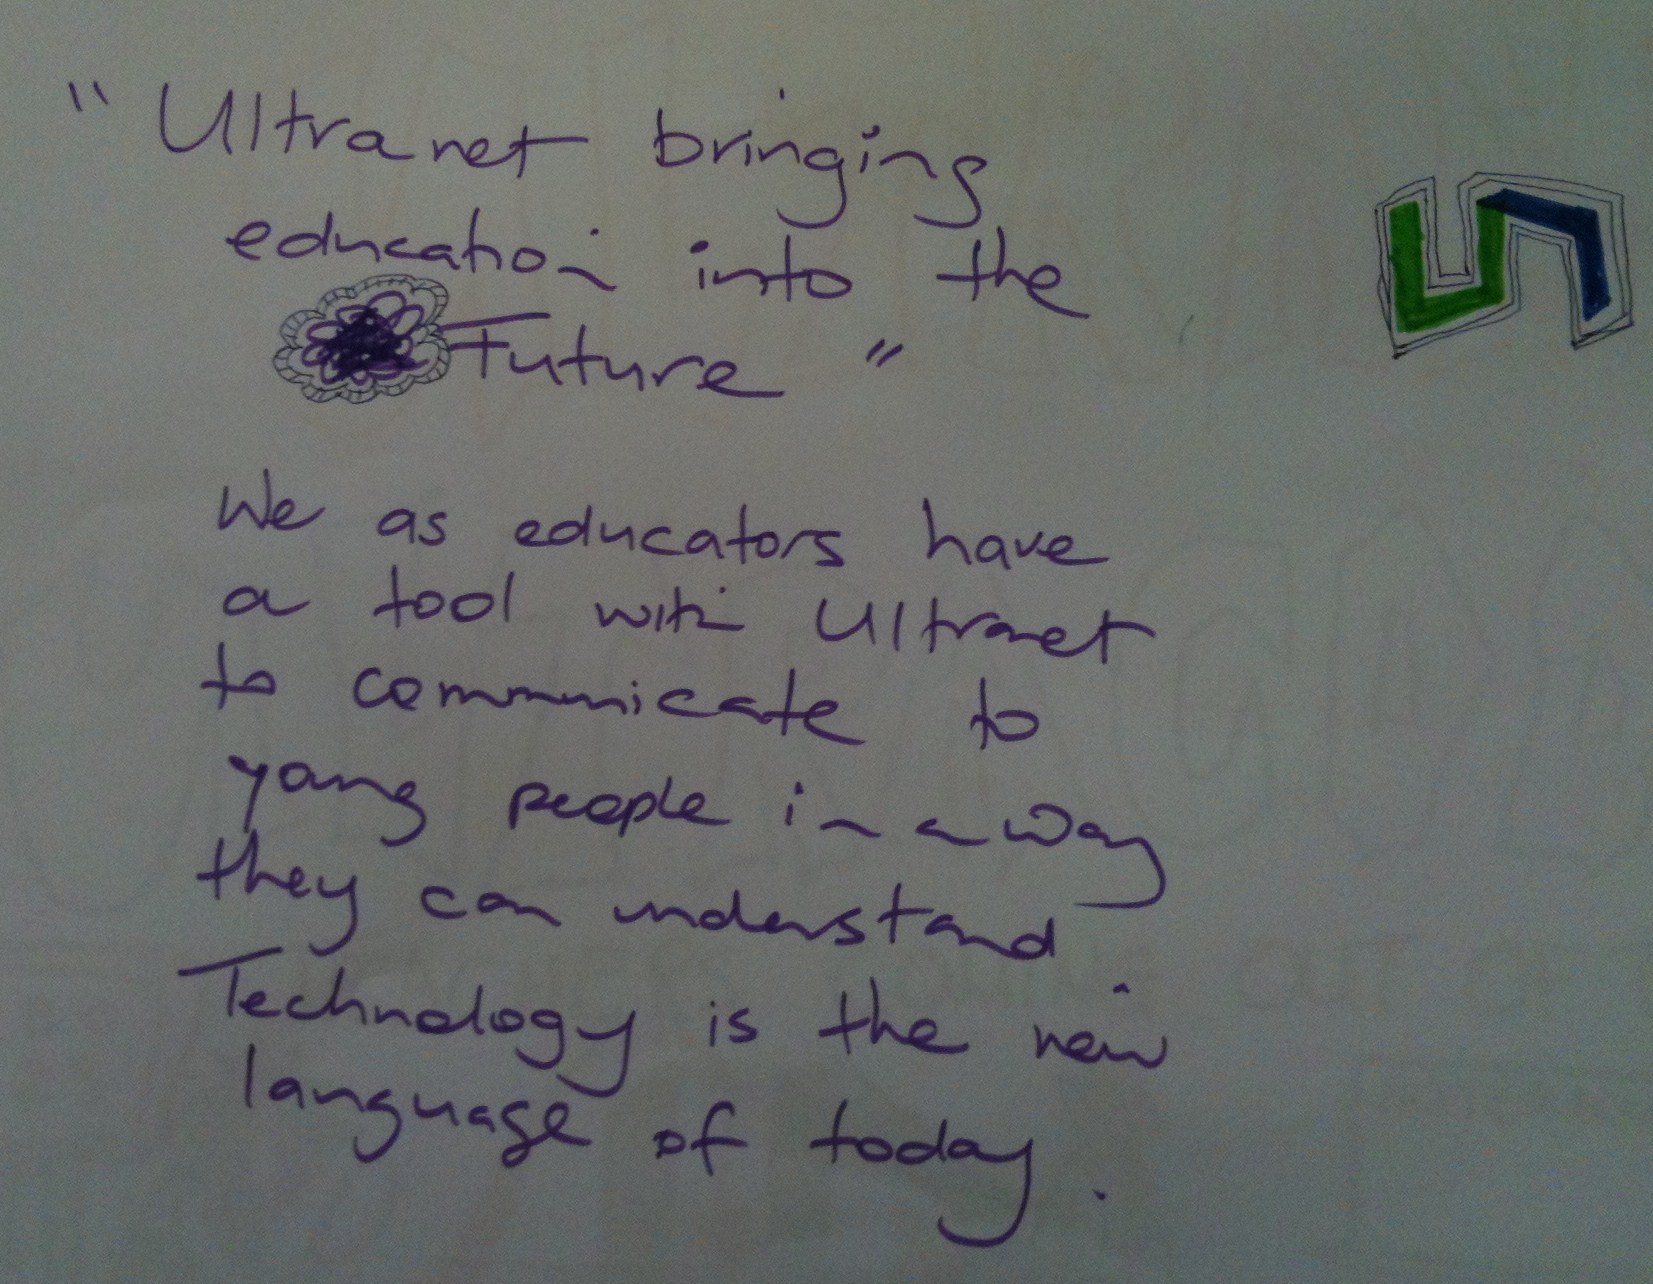 "Ultranet bringing
education into the
Future"
We as educators have
a tool with Ultranet
to communicate to
young people in a way
they can understand
Technology is the new
language of today.